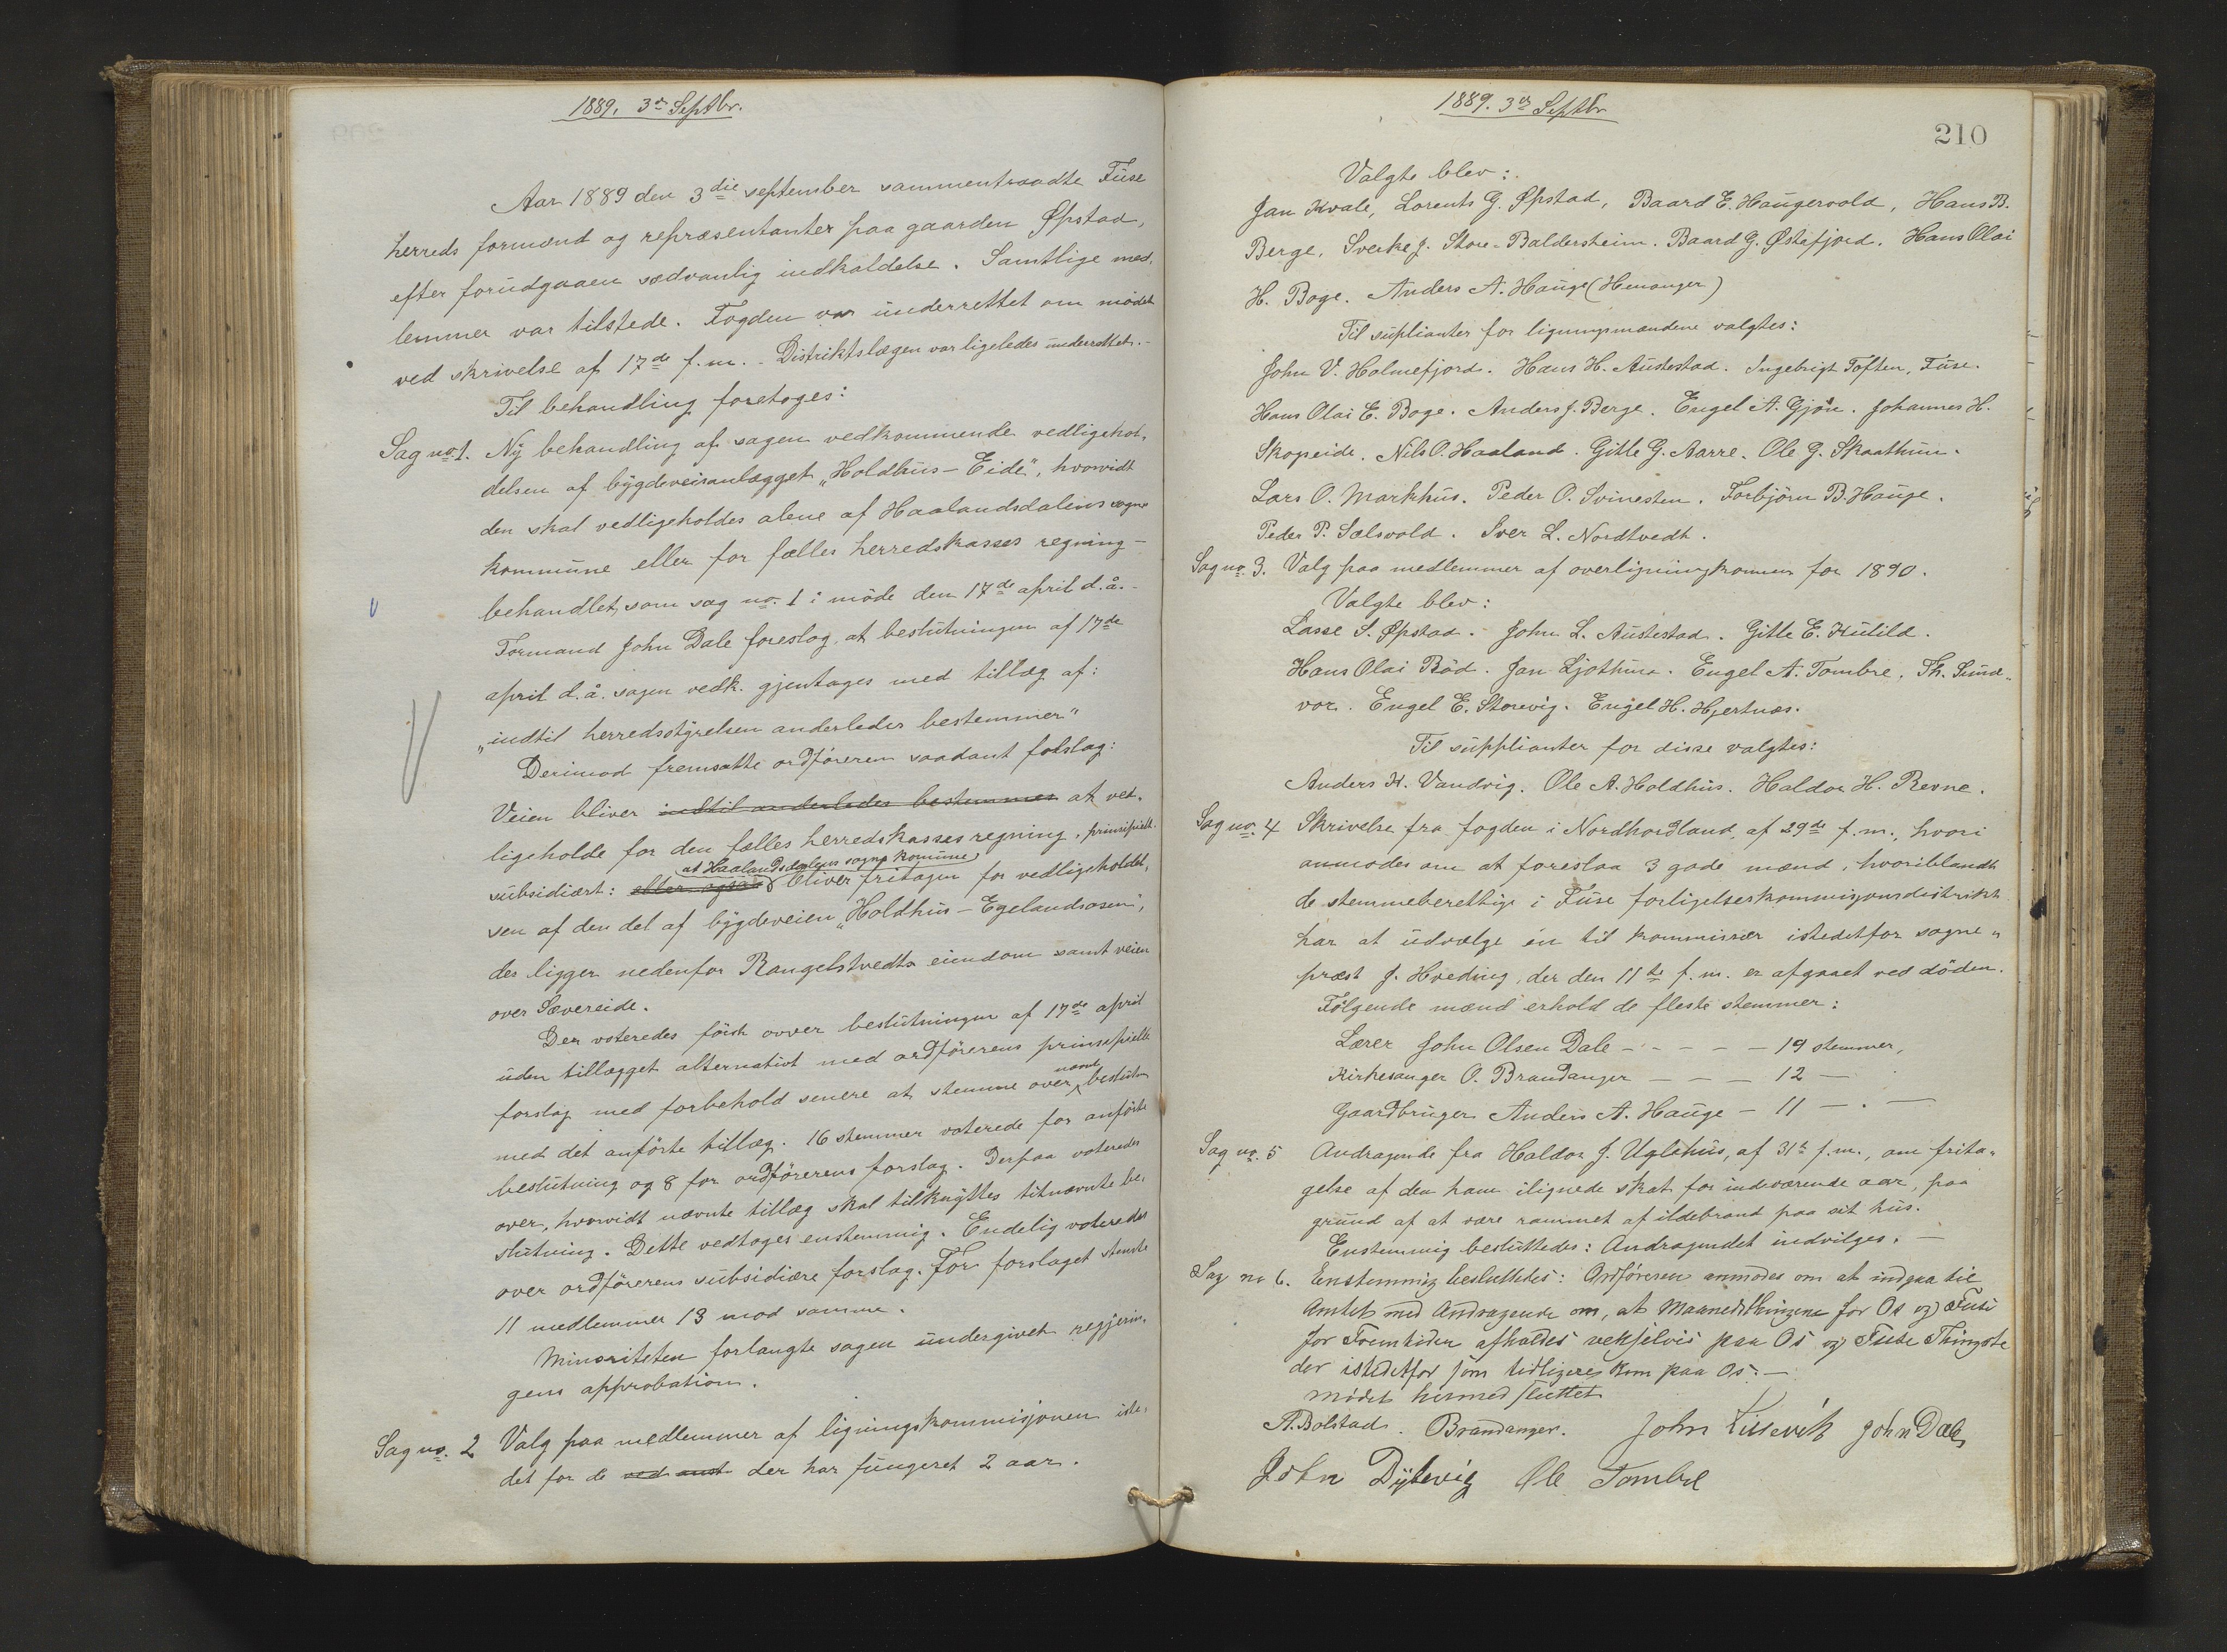 1889, 3die Septbr.
Aar 1889 den 3die september sammentraadte Fuse
herreds formænd og repræsentanter paa gaarden Øpstad,
efter forudgaaen sædvanlig indkaldelse. Samtlige med-
lemmer var tilstede. Fogden var underrettet om mödet
ved skrivelse af 17de f.m. - Distriktslægen var ligeledes underrettet. -
Til behandling foretoges:
Sag no. 1. Ny behandling af sagen vedkommende vedligehol-
delsen af bygdeveisanlægget „Holdhus - Eide", hvorvidt
den skal vedligeholdes alene af Haalandsdalens sogne
kommune eller for fælles herredskasses regning -
behandlet som sag no. 1 i möde den 17de april d.å. -
Formand John Dale foreslog, at beslutningen af 17de
april d.å. sagen vedk. gjentages med tillæg af:
„indtil herredsstyrelsen anderledes bestemmer"
Derimod fremsatte ordföreren saadant forslag:
Veien bliver indtil anderledes bestemmes at ved-
ligeholde for den fælles herredskasses regning, prinsipielt.
at Haalandsdalens sogns komune
subsidiært: eller ogsaa bliver fritagen for vedligeholdel-
sen af den del af bygdeveien „Holdhus - Egelandsosen",
der ligger nedenfor Rangelstvedts eiendom samt veien
over Sævereide.
Der voteredes först ovver beslutningen af 17de april
uden tillægget alternativt med ordförerens prinsipielle
forslag med forbehold senere at stemme over nævnte beslutn
med det anförte tillæg. 16 stemmer voterede for anförte
beslutning og 8 for ordförerens forslag. Derpaa voteredes
over, hvorvidt nævnte tillæg skal tilknyttes titnævnte be-
slutning. Dette vedtoges enstemmig. Endelig voteredes
over ordförerens subsidiære forslag. For forslaget stemte
11 medlemmer 13 mod samme.
Minoriteten forlangte sagen undergivet regjerin-
gens approbation.
Sag no. 2 Valg paa medlemmer af ligningskommisjonen iste-
det for de ved aust der har fungeret 2 aar.
1889. 3die Septbr
210
Valgte blev:
Jan Kvale, Lorents G. Øpstad, Baard E. Haugervold, Hans B.
Berge, Sverke J. Store-Baldersheim. Baard G. Østafjord. Hans Olai
H. Boge. Anders A. Hauge (Henanger)
Til suplianter for ligningsmændene valgtes:
John V. Holmefjord. Hans H. Austestad. Ingebrigt Toften, Fuse.
Hans Olai E. Boge. Anders J. Berge. Engel A. Gjön. Johannes H.
Skogseide. Nils O. Haaland. Gitle G. Aarre. Ole G. Skaathun.
Lars O. Markhus. Peder O. Svinesten. Torbjörn B. Hauge.
Peder P. Sælsvold. Iver L. Nordtvedt.
Sag no. 3. Valg paa medlemmer af overligningskomm for 1890.
Valgte blev:
Lasse S. Øpstad. John L. Austestad. Gitle E. Kulild.
Hans Olai Böd. Jan Ljothun. Engel A. Tombre. Th. Sund-
vor. Engel E. Storevig. Engel H. Hjertnæs.
Til supplianter for disse valgtes:
Anders H. Vandvig. Ole A. Holdhus. Haldor H. Revne.
Sag no. 4 Skrivelse fra fogden i Nordhordland, af 29de f.m., hvori
anmodes om at foreslaa 3 gode mænd, hvoriblandt
de stemmeberettige i Fuse forligelseskommisjonsdistrikt
har at udvælge én til kommissær istedetfor sogne-
præst J. Hveding, der den 11te f.m. er afgaaet ved döden.
Fölgende mænd erhold de fleste stemmer:
Lærer John Olsen Dale - - - - - 19 stemmer,
Kirkesanger O. Brandanger - - - 12 -
Gaardbruger Anders A. Hauge - 11 - . -
Sag no. 5 Andragende fra Haldor J. Uglehus, af 31te f.m., om frita-
gelse af den ham ilignede skat for indeværende aar, paa
grund af at være rammet af ildebrand paa sit hus.
Enstemmig besluttedes: Andragendet indvilges. -
Sag no 6. Enstemmig besluttedes: Ordföreren anmodes om at indgaa til
Amtet med Andragende om, at Maanedsthingene for Os og Fuse
for Fremtiden afholdes vekselvis paa Os og Fuse Thingste
der istedetfor som tidligere kun paa Os. -
Mödet hermed sluttet
A. Bolstad. Brandanger. John Lillevik John Dale
John Dyvevig Ole Tombre